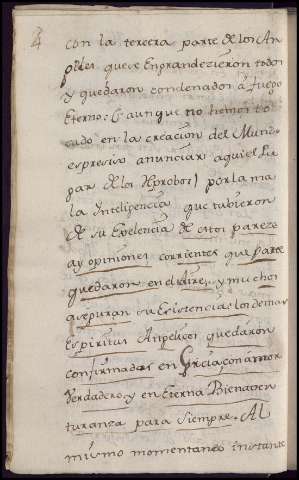 4
con la tercera parte de los An
geles que se Engrandezieron todos
y quedaron condenados à fuego
Eterno: (aunque no hemos to
cado en la creacion del Mun
espresix anunciar aqui el lu
gar de los Reprobos) por la ma
la Inteligencia que tubieron
de su Exelencia de estos pareze
ay opiniones corrientes que parte
quedaron en el Aire, y muchos
aseguran su Existencia: los demas
Espiritus Angelicos quedaron
confirmados en Gracia, con amor
Verdadero, y en Eterna Bienaven
turanza para siempre. Al
mismo momentaneo instante